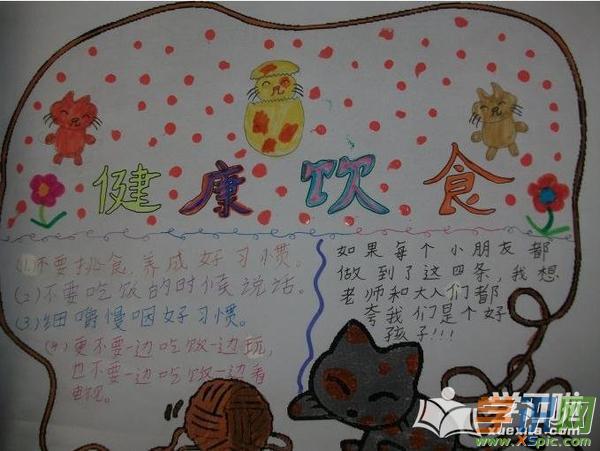 健康饮食
(1)不要挑食,养成好习惯。
(2)不要吃饭的时候说话。
(3)细嚼慢咽好习惯。
(4)更不要一边吃饭一边玩,
也不要一边吃饭一边看
电视。
如果每个小朋友都
做到了这四条,我想
老师和大人们都
夸我们是个好
孩子!!!
xuexila.com
学识网
www.XSpic.com